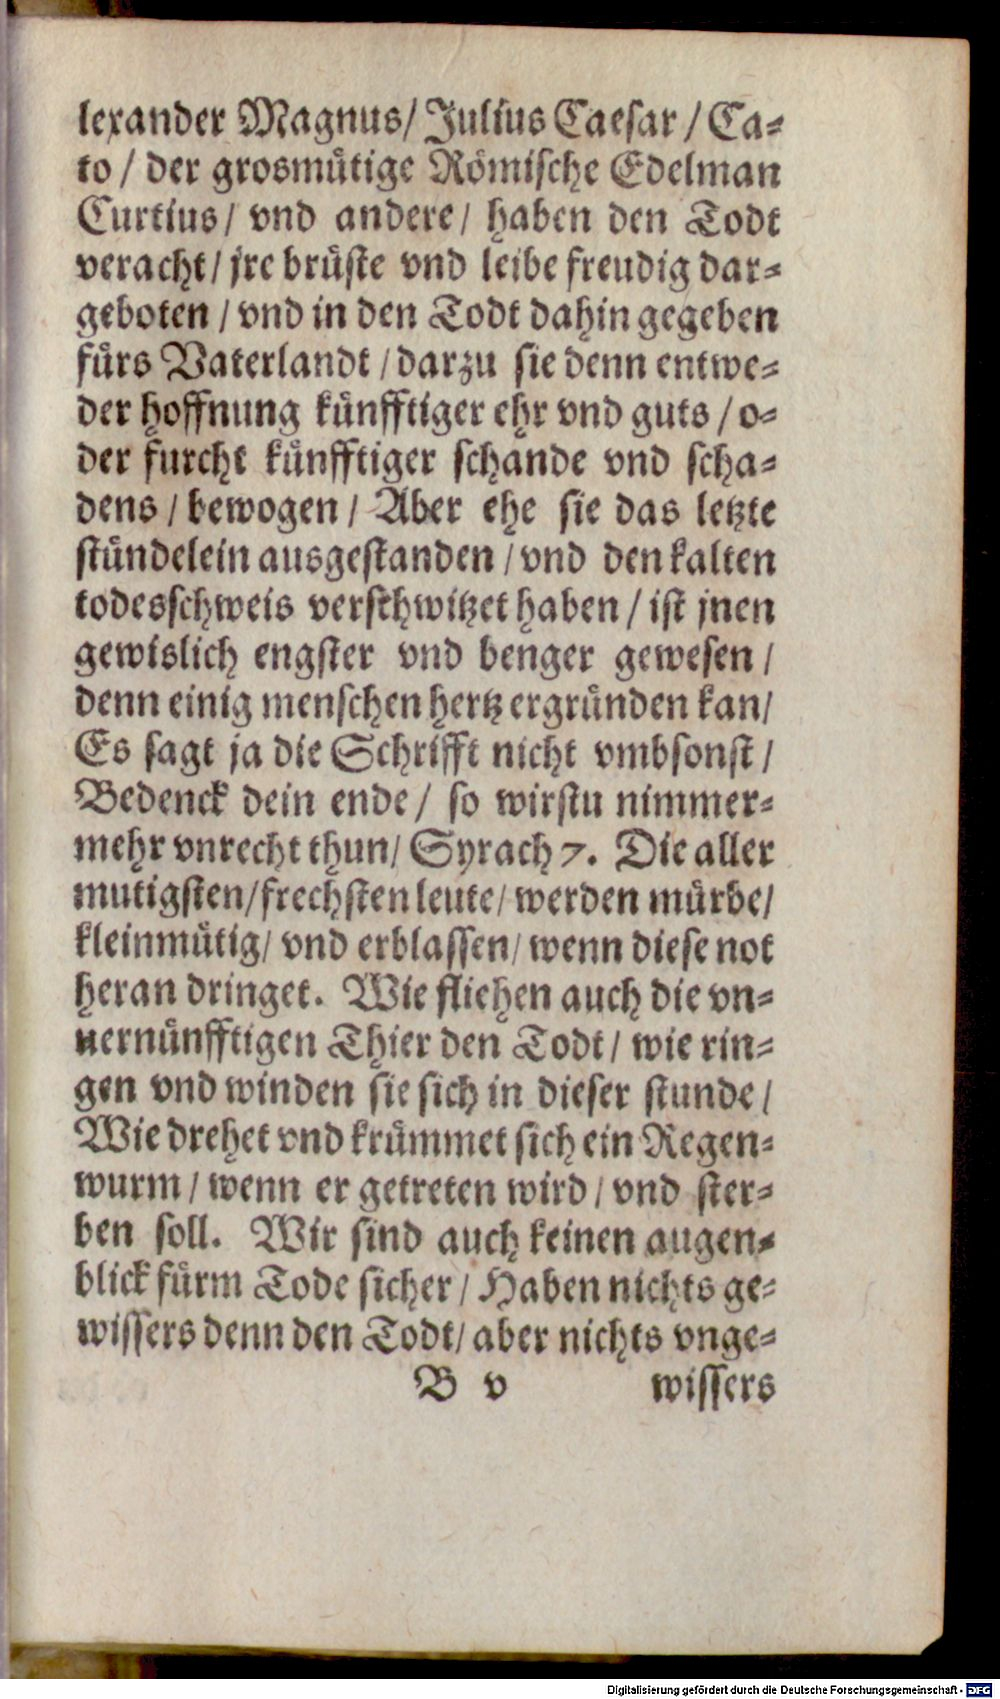 lexander Magnus/ Julius Caesar / Ca-
to / der grosmütige Römische Edelman
Curtius/ vnd andere/ haben den Todt
veracht/ jre brüste vnd leibe freudig dar-
geboten / vnd in den Todt dahin gegeben
fürs Vaterlandt / darzu sie denn entwe-
der hoffnung künfftiger ehr vnd guts / o-
der furcht künfftiger schande vnd scha-
dens / bewogen / Aber ehe sie das letzte
stündelein ausgestanden / vnd den kalten
todesschweis verschwitzet haben / ist jnen
gewislich engster vnd benger gewesen /
denn einig menschen hertz ergründen kan/
Es sagt ja die Schrifft nicht vmbsonst /
Bedenck dein ende / so wirstu nimmer-
mehr vnrecht thun/ Syrach 7. Die aller
mutigsten/ frechsten leute/ werden mürbe/
kleinmütig/ vnd erblassen/ wenn diese not
heran dringet. Wie fliehen auch die vn-
uernünfftigen Thier den Todt / wie rin-
gen vnd winden sie sich in dieser stunde /
Wie drehet vnd krümmet sich ein Regen-
wurm / wenn er getreten wird / vnd ster-
ben soll. Wir sind auch keinen augen-
blick fürm Tode sicher / Haben nichts ge-
wissers denn den Todt/ aber nichts vnge-
B v wissers
Digitalisierung gefördert durch die Deutsche Forschungsgemeinschaft - DFG